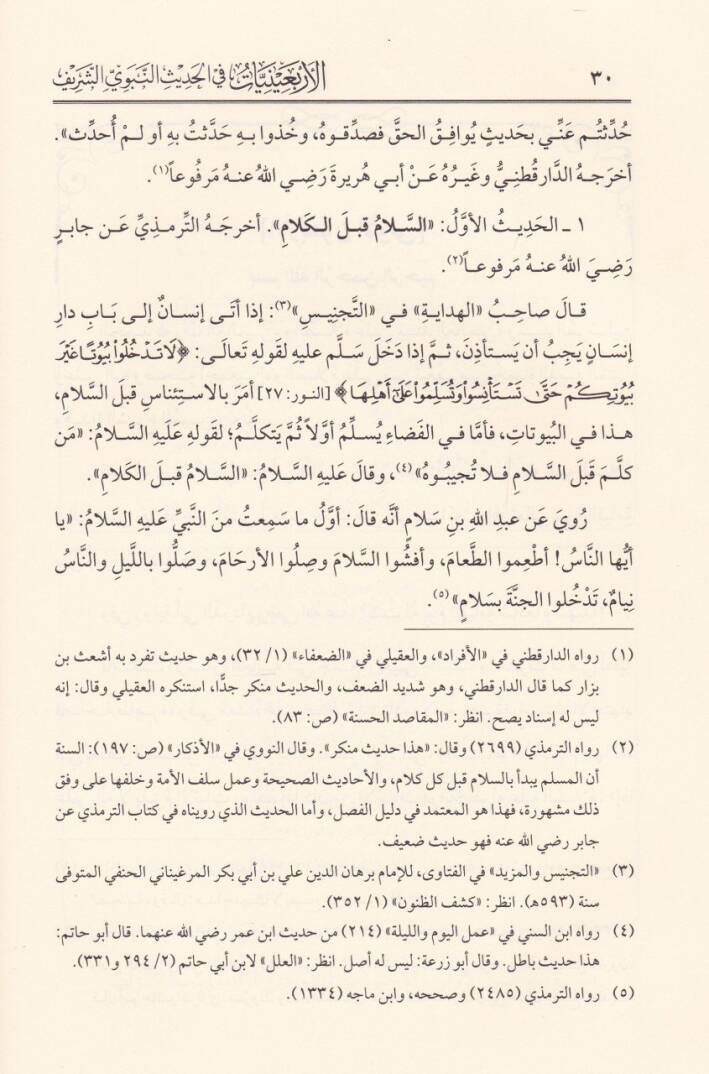 ٣٠ الأربعينيات في الحديث النبوي الشريف
حُدِّثتُم عَنِّي بحَديثٍ يُوافِقُ الحقَّ فصدِّقوهُ، وخُذوا بهِ حَدَّثتُ بهِ أو لمْ أُحدِّث».
أخرجَهُ الدَّارقُطنِيُّ وغَيرُهُ عَنْ أبي هُريرةَ رَضِي اللهُ عنهُ مَرفُوعاً(١).
١ ـ الحَديثُ الأوَّلُ: «السَّلامُ قبلَ الكَلامِ». أخرجَهُ التِّرمذِيُّ عَن جابرٍ
رَضِيَ اللهُ عنهُ مَرفوعاً(٢).
قالَ صاحِبُ «الهدايةِ» في «التَّجنِيسِ»(٣): إذا أتَى إنسانٌ إلى بَابِ دارِ
إنسَانٍ يَجبُ أن يَستأذِنَ، ثمَّ إذا دَخَلَ سَلَّم عليهِ لقَولِهِ تَعالَى: ﴿لَا تَدْخُلُوا بُيُوتًا غَيْرَ
بُيُوتِكُمْ حَتَّىٰ تَسْتَأْنِسُوا وَتُسَلِّمُوا عَلَىٰ أَهْلِهَا﴾ [النور: ٢٧] أمَرَ بالاستِئناسِ قبلَ السَّلامِ،
هذا في البُيوتاتِ، فأمَّا في الفَضاءِ يُسلِّمُ أوَّلاً ثُمَّ يَتكلَّمُ؛ لقَولهِ عَلَيهِ السَّلامُ: «مَن
كلَّمَ قَبلَ السَّلامِ فلا تُجيبُوهُ»(٤)، وقالَ عَليهِ السَّلامُ: «السَّلامُ قبلَ الكَلامِ».
رُويَ عَن عبدِ اللهِ بنِ سَلامٍ أنَّه قالَ: أوَّلُ ما سَمِعتُ منَ النَّبيِّ عليهِ السَّلامُ: «يا
أيُّها النَّاسُ! أطْعِموا الطَّعامَ، وأفشُوا السَّلامَ وصِلُوا الأرحَامَ، وصَلُّوا باللَّيلِ والنَّاسُ
نِيامٌ، تَدْخُلوا الجنَّةَ بسَلامٍ»(٥).
(١) رواه الدارقطني في «الأفراد»، والعقيلي في «الضعفاء» (١/ ٣٢)، وهو حديث تفرد به أشعث بن
بزار كما قال الدارقطني، وهو شديد الضعف، والحديث منكر جدًّا، استنكره العقيلي وقال: إنه
ليس له إسناد يصح. انظر: «المقاصد الحسنة» (ص: ٨٣).
(٢) رواه الترمذي (٢٦٩٩) وقال: «هذا حديث منكر». وقال النووي في «الأذكار» (ص: ١٩٧): السنة
أن المسلم يبدأ بالسلام قبل كل كلام، والأحاديث الصحيحة وعمل سلف الأمة وخلفها على وفق
ذلك مشهورة، فهذا هو المعتمد في دليل الفصل، وأما الحديث الذي رويناه في كتاب الترمذي عن
جابر رضي الله عنه فهو حديث ضعيف.
(٣) «التجنيس والمزيد» في الفتاوى، للإمام برهان الدين علي بن أبي بكر المرغيناني الحنفي المتوفى
سنة (٥٩٣هـ). انظر: «كشف الظنون» (١/ ٣٥٢).
(٤) رواه ابن السني في «عمل اليوم والليلة» (٢١٤) من حديث ابن عمر رضي الله عنهما. قال أبو حاتم:
هذا حديث باطل. وقال أبو زرعة: ليس له أصل. انظر: «العلل» لابن أبي حاتم (٢/ ٢٩٤ و٣٣١).
(٥) رواه الترمذي (٢٤٨٥) وصححه، وابن ماجه (١٣٣٤).